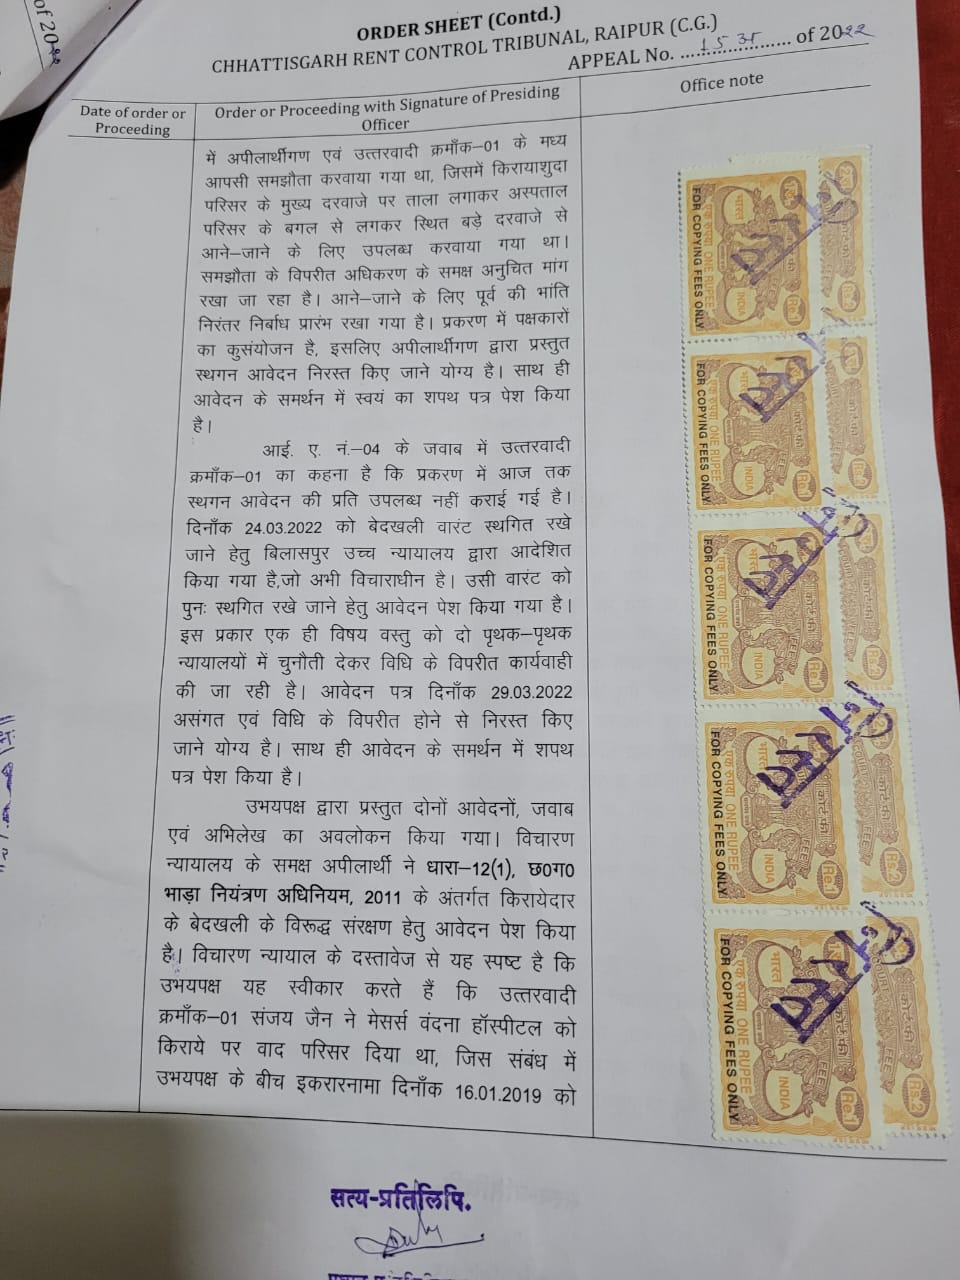 of 2022
ORDER SHEET (Contd.)
CHHATTISGARH RENT CONTROL TRIBUNAL, RAIPUR (C.G.)
APPEAL No. ...................... of 2022
Date of order or Proceeding
Order or Proceeding with Signature of Presiding Officer
Office note
में अपीलार्थीगण एवं उत्तरवादी क्रमाँक–01 के मध्य
आपसी समझौता करवाया गया था, जिसमें किरायाशुदा
परिसर के मुख्य दरवाजे पर ताला लगाकर अस्पताल
परिसर के बगल से लगकर स्थित बड़े दरवाजे से
आने–जाने के लिए उपलब्ध करवाया गया था।
समझौता के विपरीत अधिकरण के समक्ष अनुचित मांग
रखा जा रहा है। आने–जाने के लिए पूर्व की भांति
निरंतर निर्बाध प्रारंभ रखा गया है। प्रकरण में पक्षकारों
का कुसंयोजन है, इसलिए अपीलार्थीगण द्वारा प्रस्तुत
स्थगन आवेदन निरस्त किए जाने योग्य है। साथ ही
आवेदन के समर्थन में स्वयं का शपथ पत्र पेश किया
है।
आई. ए. नं.–04 के जवाब में उत्तरवादी
क्रमाँक–01 का कहना है कि प्रकरण में आज तक
स्थगन आवेदन की प्रति उपलब्ध नहीं कराई गई है।
दिनाँक 24.03.2022 को बेदखली वारंट स्थगित रखे
जाने हेतु बिलासपुर उच्च न्यायालय द्वारा आदेशित
किया गया है,जो अभी विचाराधीन है। उसी वारंट को
पुनः स्थगित रखे जाने हेतु आवेदन पेश किया गया है।
इस प्रकार एक ही विषय वस्तु को दो पृथक–पृथक
न्यायालयों में चुनौती देकर विधि के विपरीत कार्यवाही
की जा रही है। आवेदन पत्र दिनाँक 29.03.2022
असंगत एवं विधि के विपरीत होने से निरस्त किए
जाने योग्य है। साथ ही आवेदन के समर्थन में शपथ
पत्र पेश किया है।
उभयपक्ष द्वारा प्रस्तुत दोनों आवेदनों, जवाब
एवं अभिलेख का अवलोकन किया गया। विचारण
न्यायालय के समक्ष अपीलार्थी ने धारा–12(1), छ0ग0
भाड़ा नियंत्रण अधिनियम, 2011 के अंतर्गत किरायेदार
के बेदखली के विरूद्ध संरक्षण हेतु आवेदन पेश किया
है। विचारण न्यायाल के दस्तावेज से यह स्पष्ट है कि
उभयपक्ष यह स्वीकार करते हैं कि उत्तरवादी
क्रमाँक–01 संजय जैन ने मेसर्स वंदना हॉस्पीटल को
किराये पर वाद परिसर दिया था, जिस संबंध में
उभयपक्ष के बीच इकरारनामा दिनाँक 16.01.2019 को
भारत INDIA Re.1
एक रुपया ONE RUPEE
FOR COPYING FEES ONLY
भारत INDIA Re.1
एक रुपया ONE RUPEE
FOR COPYING FEES ONLY
भारत INDIA Re.1
एक रुपया ONE RUPEE
FOR COPYING FEES ONLY
Rs.2
भारत INDIA Re.1
एक रुपया ONE RUPEE
FOR COPYING FEES ONLY
Rs.2
भारत INDIA Re.1
एक रुपया ONE RUPEE
FOR COPYING FEES ONLY
Rs.2
सत्य-प्रतिलिपि.